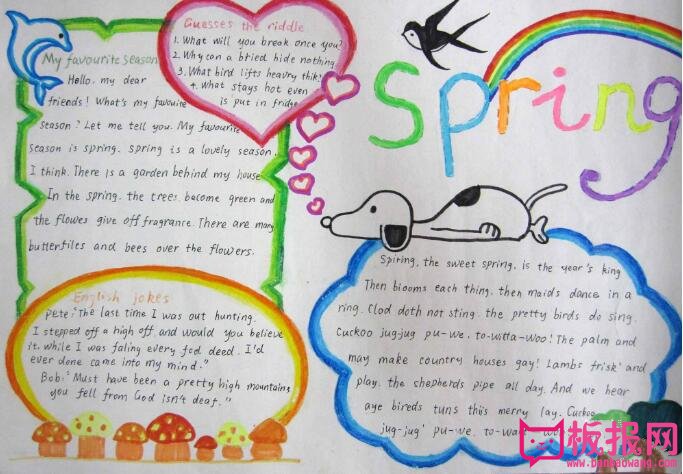 My favourite season
Hello, my dear
friends! What's my favouite
season? Let me tell you. My favourite
season is spring. spring is a lovely season.
I think. There is a garden behind my house
In the spring. the trees become green and
the flowes give off fragrance. There are many
butterflies and bees over the flowers.
Guesses the riddle
1. What will you break once you?
2. Why can a bried hide nothing
3. What bird lifts heavry thik?
4. What stays hot even
is put in fridge
Spring
English jokes
Pete: "The last time I was out hunting.
I stepped off a high off and would you believe
it. while I was faling every fod deed. I'd
ever done came into my mind."
Bob: "Must have been a pretty high mountains
you fell from God isn't deaf."
Spiring, the sweet spring, is the year's king
Then blooms each thing, then maids dance in a
ring. Clod doth not sting. the pretty birds do sing.
Cuckoo jug-jug pu-we, to-witta-woo! The palm and
may make country houses gay! Lambs frisk' and
play. the shepherds pipe all day. And we hear
aye bireds tuns this merry lay. Cuckoo
jug-jug' pu-we, to-wa
板报网
www.banbaowang.com